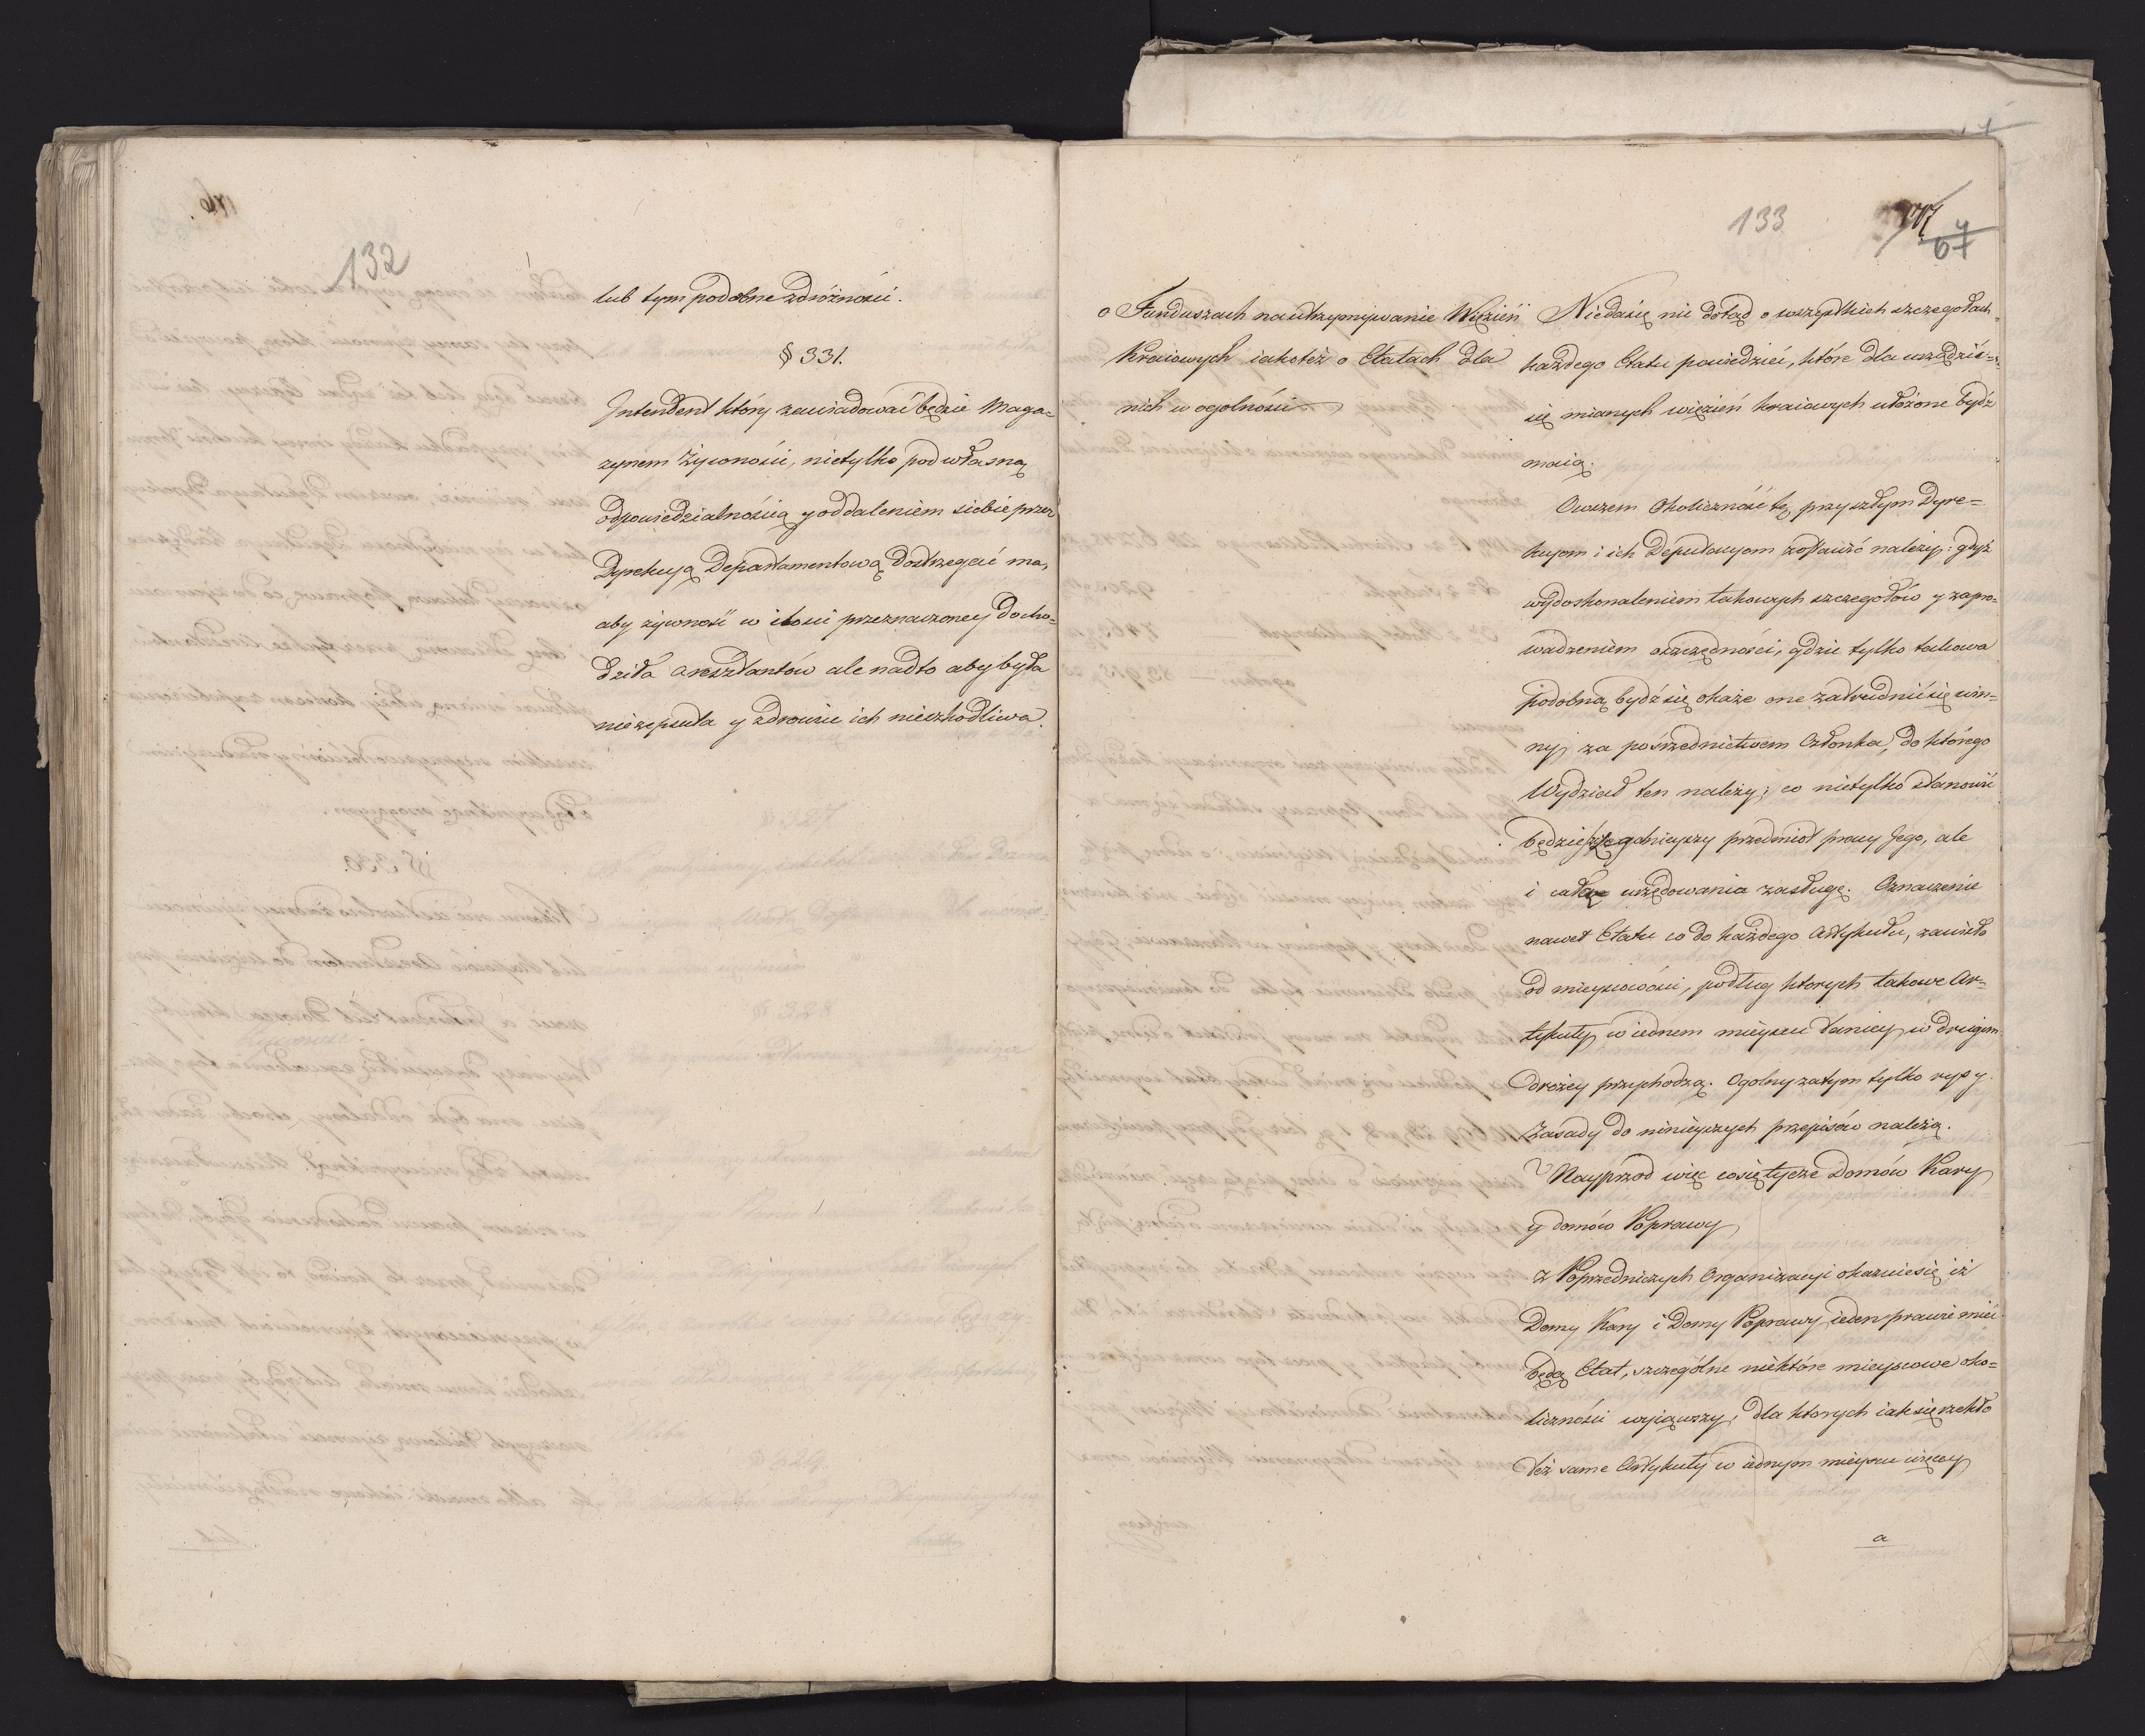 132
lub tym podobne zdróżności.
§ 331.
Intendent który zawiadować będzie Maga-
zynem Żywności, nietylko pod własną
odpowiedzialnością y oddaleniem siebie przez
Dyrekcyą Departamentową dostrzegać ma,
aby żywność w ilości przeznaczoney docho-
dziła aresztantów ale nadto aby była
niezepsuta y zdrowiu ich nieszkodliwa.
133
67
o Funduszach na utrzymywanie Więzień
Kraiowych iakoteż o Etatach dla
nich w ogolności
Niedasię nic dotąd o wszystkich szczegołach
każdego Etatu powiedzieć, które dla urządzić=
się mianych więzień kraiowych ułożone bydź
maią.
Owszem Okoliczność tę przyszłym Dyre=
kcyom i ich Deputacyom zostawić należy: gdyż
wydoskonaleniem takowych szczegołów y zapro-
wadzeniem oszczędności, gdzie tylko takowa
podobną bydź się okaże one zatrudnić się win-
ny, za pośrednictwem Członka, do którego
Wydział ten należy; co nietylko stanowić
będzie przedmiot pracy Jego, ale
i całą urzędowania zasługę. Oznaczenie
nawet Etatu co do każdego Artykułu, zawisło
od mieyscowości, podług ktorych takowe Ar-
tykuły w iednem mieyscu taniey w drugiem
drożey przychodzą. Ogolny zatym tylko rys y
Zasady do ninieyszych przepisów należą.
Nayprzod więc co się tycze Domów Kary
y domów Poprawy
z Poprzedniczych Organizacyi okazuie się iż
Domy Kary i Domy Poprawy ieden prawie mieć
będą Etat, szczególne niektóre mieyscowe oko-
liczności wyiąwszy, dla ktorych iak się rzekło
też same Artykuły w iednym mieyscu więcey
a